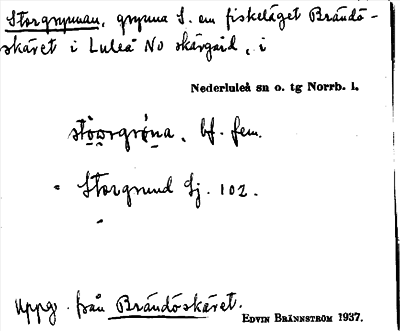 Storgrynnan, grynna S. om fiskeläget Brändö-
skäret i Luleå NO skärgård, i
Nederluleå sn o. tg Norrb. l.
stōrgrøna, bf. fem.
Storgrund Sj. 102.
Uppg. från Brändöskäret.
EDVIN BRÄNNSTRÖM 1937.